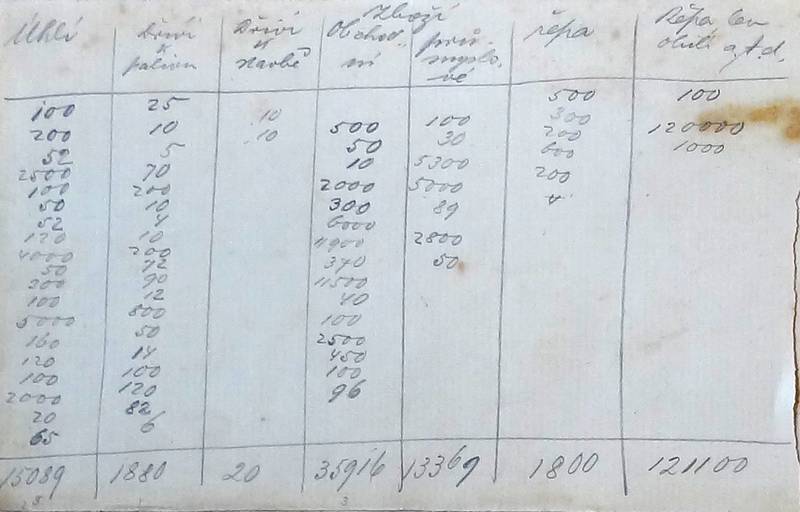 Uhlí Dříví palivu Dříví k stavbě Zboží Obchodní průmyslové řepa Řepa len obilí a.t.d.
100 25 10 500 100 500 100
200 10 10 50 30 300 120000
52 5 10 5300 200 1000
2500 70 2000 5000 600
100 200 300 89 200
50 10 6000 2800
52 4 4900 50
120 10 370
4000 200 11500
50 12 40
200 90 100
100 12 2500
5000 800 450
160 50 100
120 14 96
100 100
2000 120
20 82
65 6
15089 1880 20 35916 13369 1800 121100